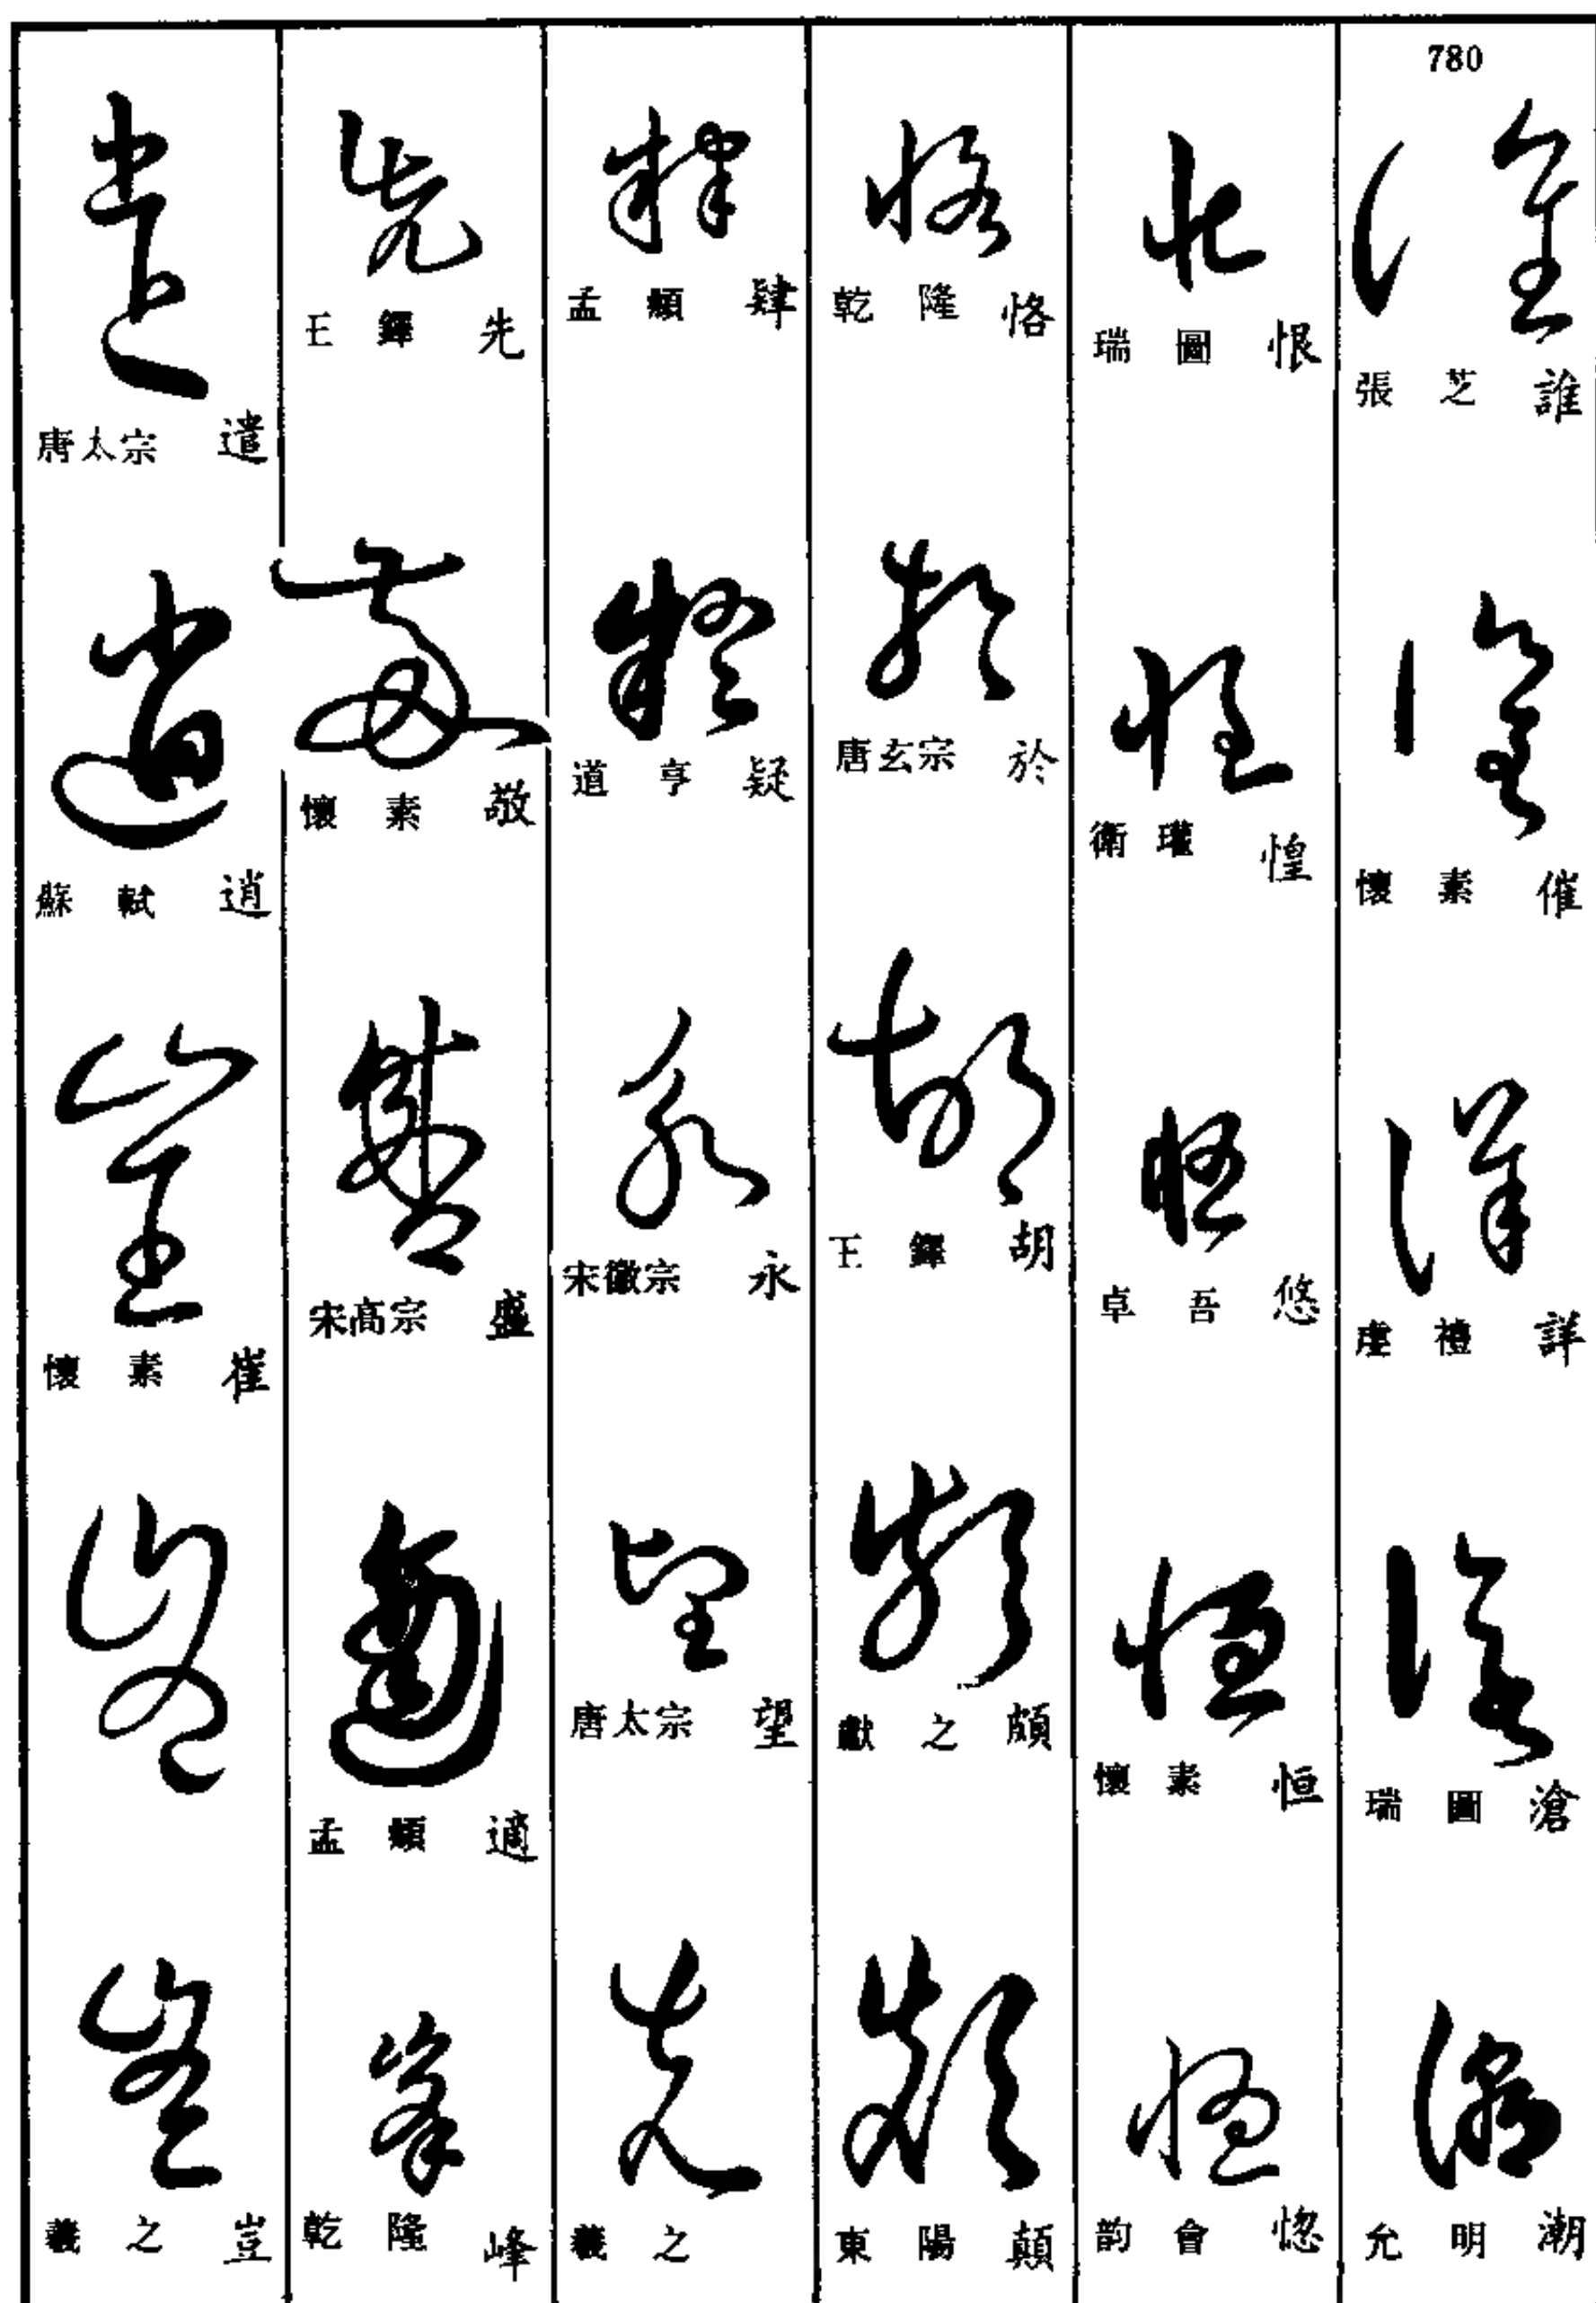 780
張芝 誰
懷素 催
虔禮 詳
瑞圖 滄
允明 潮
瑞圖 恨
衛瓘 惶
卓吾 悠
懷素 恒
韵會 惚
乾隆 恪
唐玄宗 於
王鐸 胡
獻之 頗
東陽 顛
孟頫 肆
道亨 疑
宋徽宗 永
唐太宗 望
羲之
王鐸 先
懷素 敬
宋高宗 盛
孟頫 適
乾隆 峰
唐太宗 遣
蘇軾 逍
懷素 崔
羲之 豈